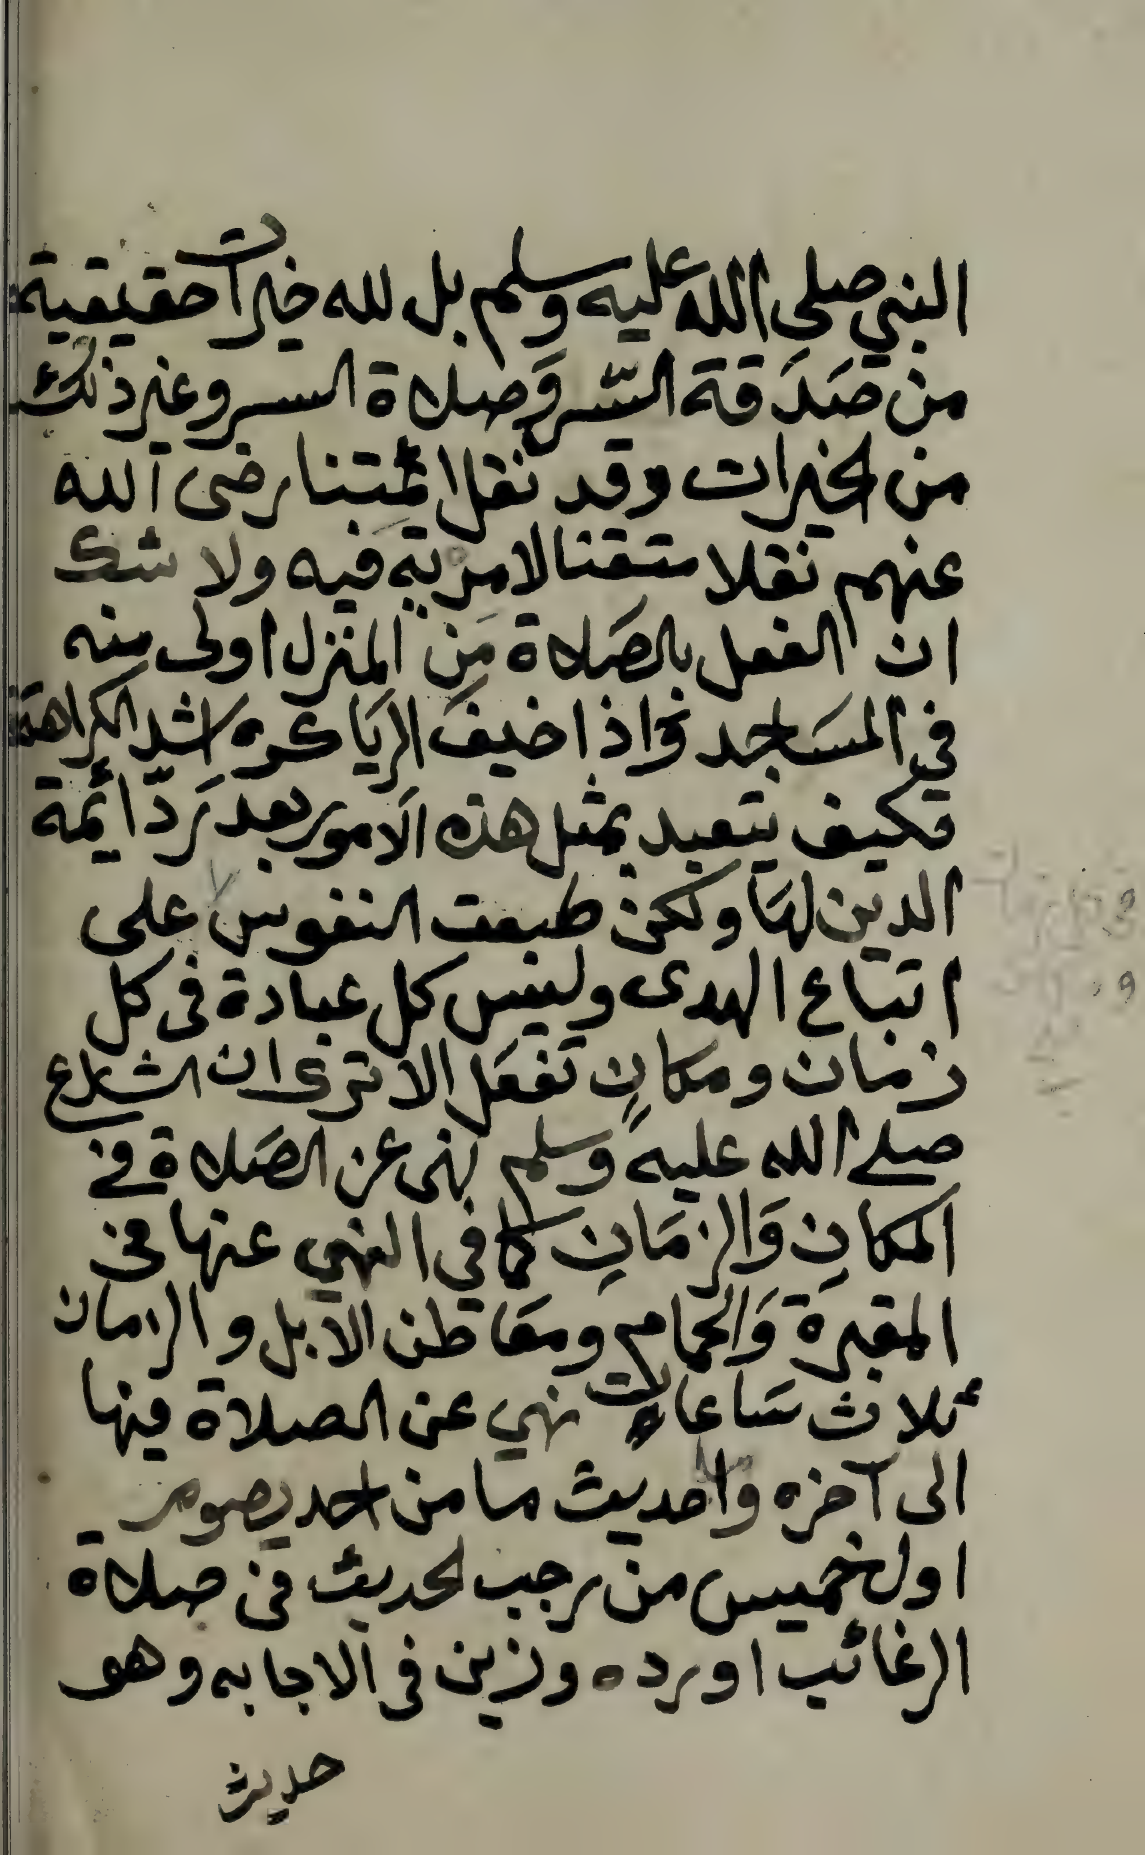 النبي صلى الله عليه وسلم بل لله خيرات حقيقية
من صَدَقة السّر وَصلاة السر وغير ذلك
من الخيرات وقد نقل ائمتنا رضى الله
عنهم نقلا متقنا لا مرية فيه ولا شك
ان الفعل بالصَلاة من المنزل اولى منه
في المسَاجد واذا خيف الريَا كره اشد الكراهة
فكيف يتعبد بمثل هذه الامور بعد رَدّ أئمة
الدين لهَا ولكن طبعت النفوس على
اتبَاع الهدى وليس كل عبادة فى كل
زمان ومكانٍ تفعَل الا ترى ان الشارع
صلى الله عليه وسلم نهى عن الصَلاة في
المكانِ وَالزمَانِ كما في النهي عنها في
المقبرَة وَالحمام ومعَاطن الابل والزمان
ثلاث سَاعات نهي عن الصلاة فيها
الى آخره واحديث ما من احد يصوم
اول خميس من رجب الحديث في صلاة
الرغائب اورده وزين فى الاجابه وهو
حديث